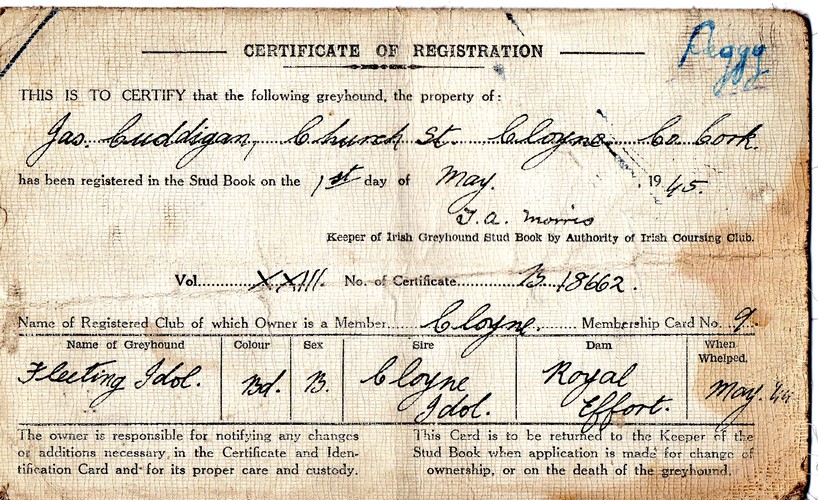 Peggy
CERTIFICATE OF REGISTRATION
THIS IS TO CERTIFY that the following greyhound, the property of :
Jas. Cuddigan, Church St. Cloyne Co Cork.
has been registered in the Stud Book on the 1st day of May. 1945.
T. A. Morris
Keeper of Irish Greyhound Stud Book by Authority of Irish Coursing Club.
Vol. XXIII. No. of Certificate B. 18662.
Name of Registered Club of which Owner is a Member Cloyne. Membership Card No. 9.
Name of Greyhound Colour Sex Sire Dam When Whelped.
Fleeting Idol. Bd. B. Cloyne Idol. Royal Effort. May. 44
The owner is responsible for notifying any changes
or additions necessary in the Certificate and Iden-
tification Card and for its proper care and custody.
This Card is to be returned to the Keeper of the
Stud Book when application is made for change of
ownership, or on the death of the greyhound.